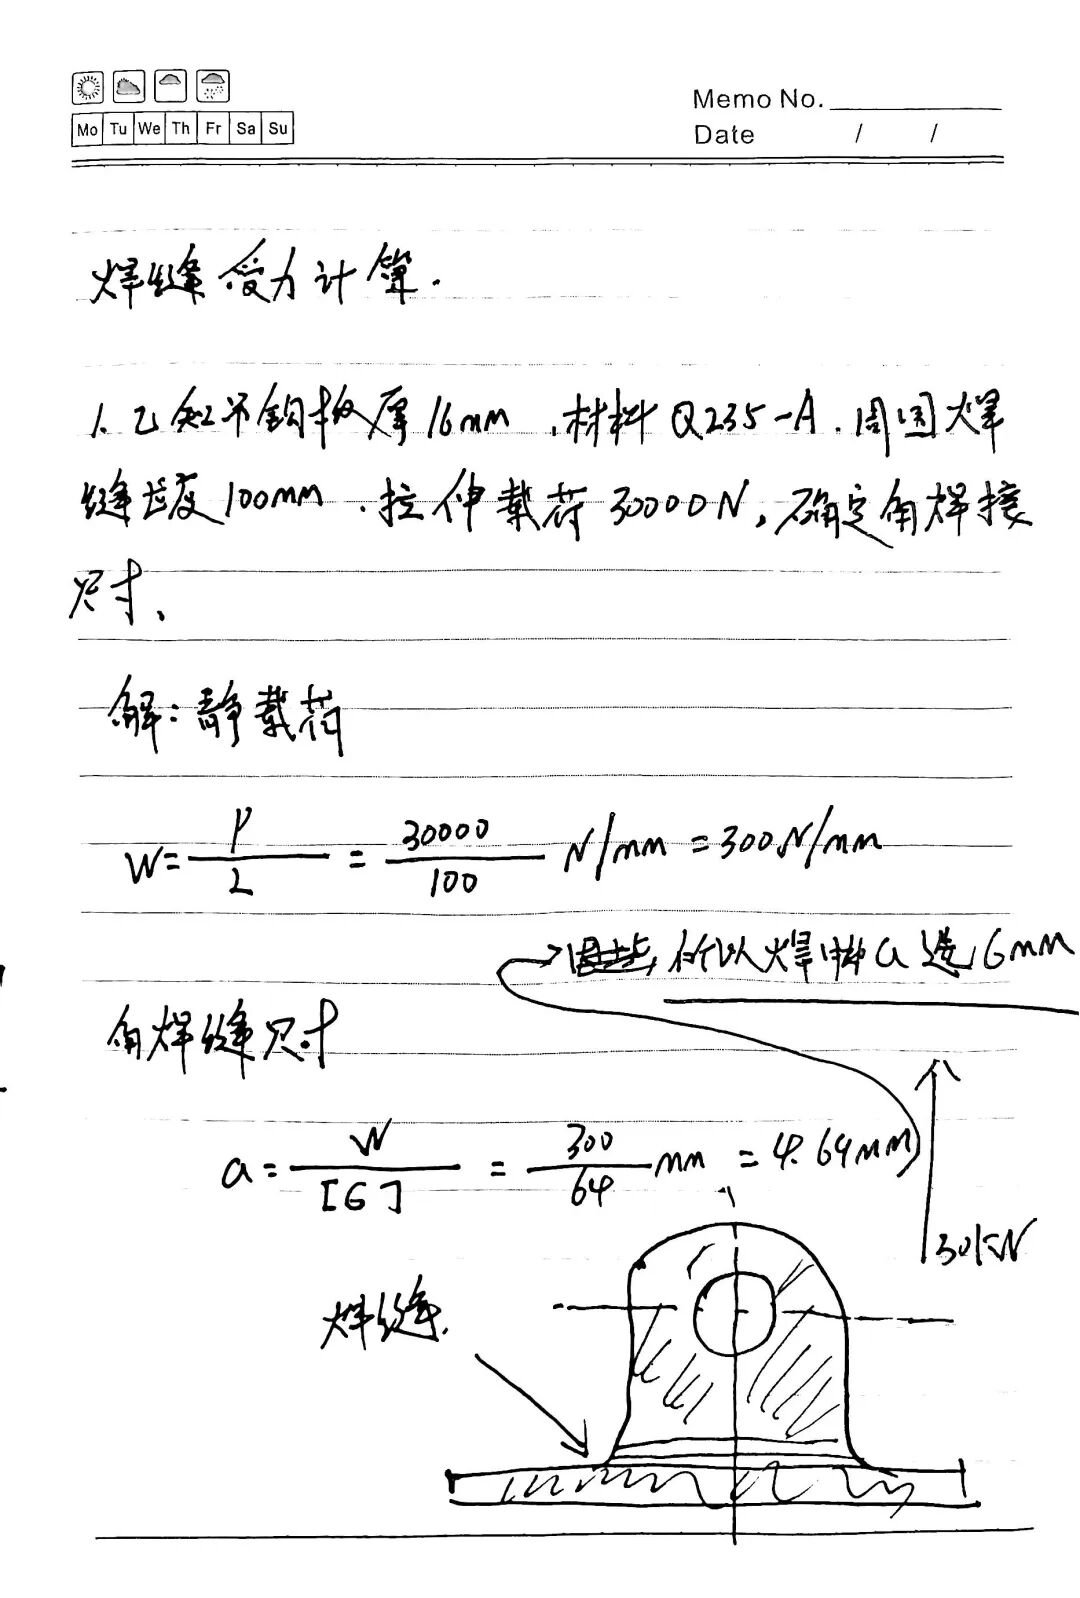 Mo Tu We Th Fr Sa Su
Memo No.
Date / /
焊缝受力计算.
1. 已知吊钩板厚16mm,材料Q235-A.周围焊
缝长度100mm.拉伸载荷30000N,确定角焊接
尺寸、
解:静载荷
W= P/L = 30000/100 N/mm = 300N/mm
所以焊脚a选6mm
角焊缝尺寸
a= W/[σ] = 300/64 mm = 4.64mm
30kN
焊缝.